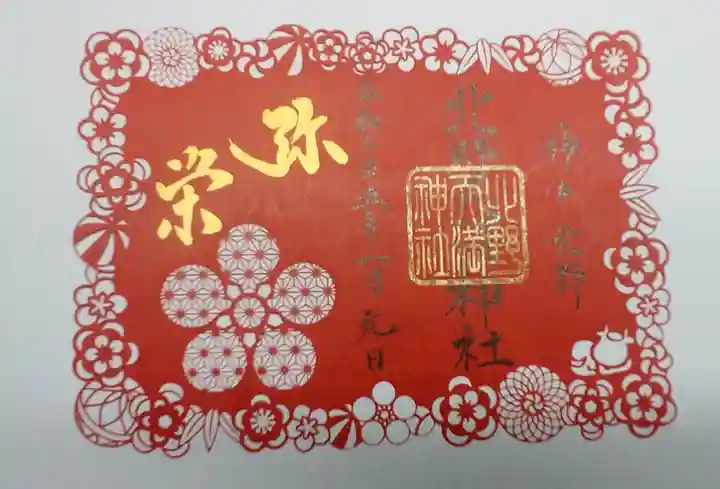 神戸北野
北野天満神社
北野天満神社
令和 年一月元日
弥栄